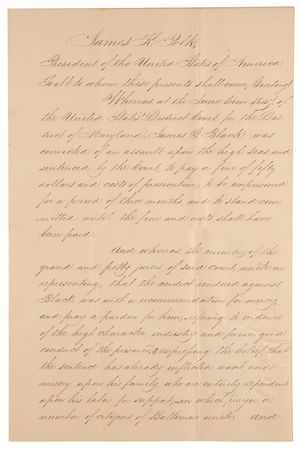 James K. Polk,
President of the United States of America
To all to whom these presents shall come, Greeting!
Whereas at the June term 1847 of
the United States District Court for the Dis-
trict of Maryland, James Black was
convicted of an assault upon the high seas and
sentenced by the Court to pay a fine of fifty
dollars and costs of prosecution, to be imprisoned
for a period of three months and to stand com-
mitted until the fine and costs shall have
been paid.
And whereas the members of the
grand and petty juries of said court, unite in
representing, that the verdict rendered against
Black, was with a recommendation for mercy,
and pray a pardon for him, referring to evidence
of the high character, industry and former good
conduct of the prisoner & expressing the belief, that
the sentence has already inflicted want and
misery upon his family, who are entirely dependent
upon his labor for support, in which prayer a
number of citizens of Baltimore unite: and